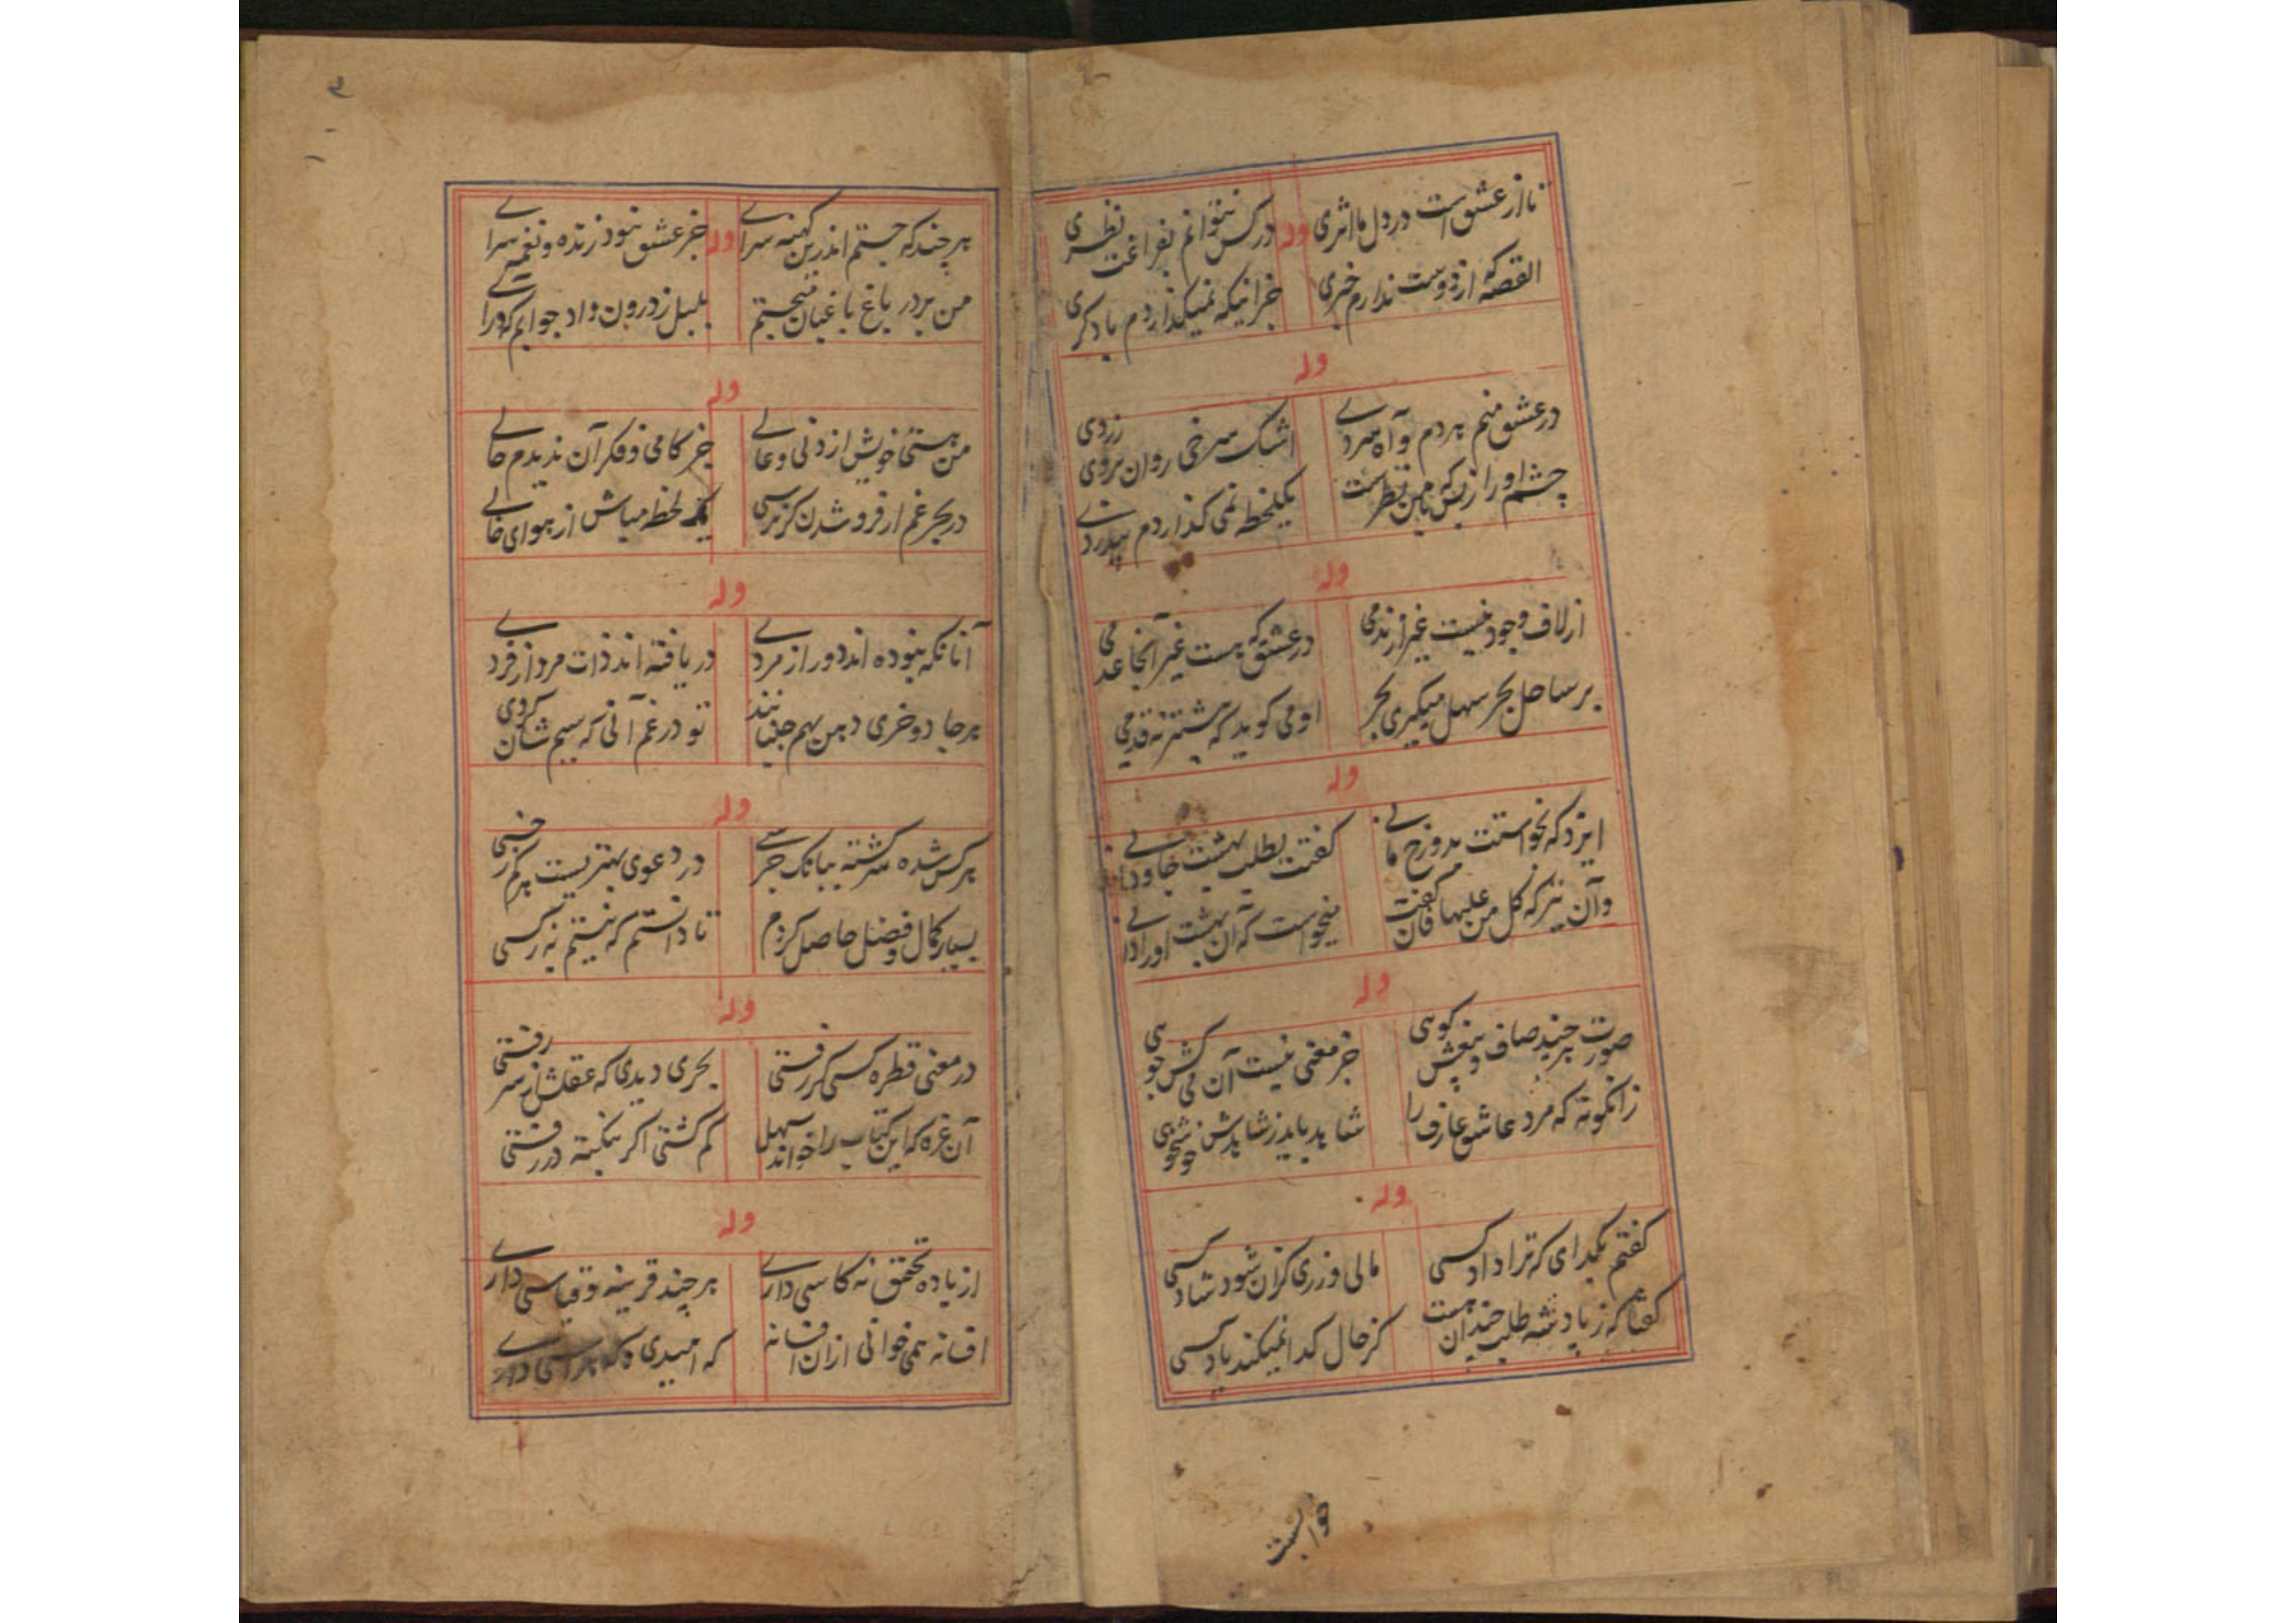 تا از عشق است در دل ما اثری وله در کس نتوانم بفراغت نظری
القصه که از دوست ندارم خبری جز اینکه نمیگذاردم با دگری
وله
در عشق منم هر دم و آه سردے اشک سرخی روان بروی زردی
چشم او را زبس که با من نظر است یکلحظه نمی گذاردم بیدردے
وله
از لاف وجود نیست غیر از ندمی در عشق که هست غیر آنجا عدمی
بر ساحل بحر سهل میگیری بحر او می گوید که پیشتر نه قدمی
وله
ایزد که نخواستت بدوزخ مانے گفتت بطلب بهشت جاودانے
وآن نیز که کل من علیها فان گفت میخواست که آن بهشت او را دانے
وله
صورت هر چند صاف و بیغش گوهی جز معنی نیست آن می کش جوهی
زانگونه که مرد عاشق عارف را شاهد باید ز شاهدش خوشخوهی
وله
گفتم بگدای که ترا داد کسی مالی و زری کزان شود شاد کسی
گفتا که ز پادشه طلب چندان هست کز حال گدا نمیکند یاد کسی
خوابست
۳
هر چند که جستم اندرین کهنه سراے وله جز عشق نبود زنده و نغمه سراے
من بر در باغ باغبان میجستم بلبل ز درون داد جوابم که درآے
وله
من هستی خویش از دنی و عالے جز کامی و فکر آن ندیدم حالے
در بحر غم از فرو شدن گر ترسی یک لحظه مباش از هوای خالے
وله
آنانکه نبوده اند دور از مردے دریافته اند ذات مرد از فردے
هر جا دو خری دهن بهم جنبانند تو در غم آنی که سیم شان گردی
وله
هر کس شده سرگشته ببانگ جرسے در دعوی بهتریست هر کم ز خسی
بسیار کمال و فضل حاصل کردم تا دانستم که نیستم نیز کسی
وله
در معنی قطره کسی گر رفتی بحری دیدی که عقلش از سر رفتی
آن غره که این کتاب را خواند سهل گم گشتی اگر بنکته در رفتی
وله
از باده تحقیق نه کاسی دارے هر چند قرینه و قیاسی دارے
افسانه همی خوانی ازان افسانه که امیدی و که هراسی دارے